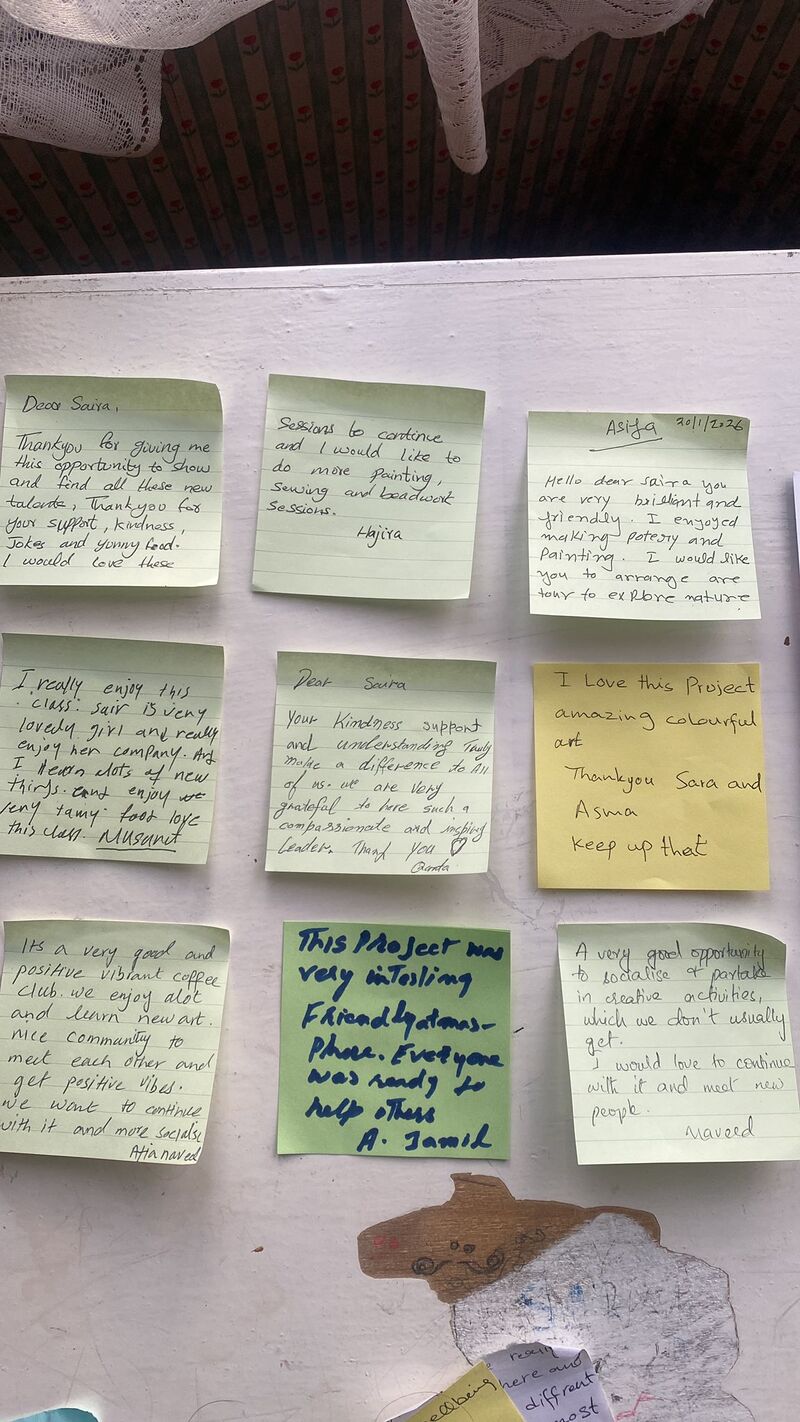 Dear Saira,
Thankyou for giving me
this opportunity to show
and find all these new
talents, Thankyou for
your support, kindness,
Jokes and yummy food.
I would love these
Sessions to continue
and I would like to
do more Painting,
Sewing and beadwork
Sessions.
Hajira
Asifa 20/1/2026
Hello dear saira you
are very brilliant and
friendly. I enjoyed
making potery and
Painting. I would like
you to arrange are
tour to explore nature
I really enjoy this
class. sair is very
lovely girl and really
enjoy her company. And
I learn alots of new
things. and enjoy
very tamy foor love
this class.
Dear Saira
Your Kindness support
and understanding Truly
make a difference to All
of us. we are very
grateful to have such a
compassionate and inspiring
Leader. Thank You
I Love this Project
amazing colourful
art
Thankyou Sara and
Asma
keep up that
Its a very good and
positive vibrant coffee
club. we enjoy alot
and learn new art.
nice community to
meet each other and
get positive vibes.
we want to continue
with it and more socialise
Atia naveed
This Project was
very intesling
Friendlyatmas-
Phare. Everyone
was ready to
help others
A. Jamil
A very good opportunity
to socialise & partake
in creative activities,
which we don't usually
get.
I would love to continue
with it and meet new
people.
Naveed
here and
diffrent
most